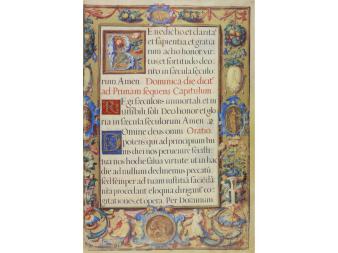 Benedictio et clarita
et sapientia et gratia
rum actio honor virtus
et fortitudo deo
nostro in sæcula sæculo
rum Amen. Dominica die dicit
ad Primam sequens Capitulum.
Regi sæculorum immortali et in
visibili soli Deo honor et glo
ria in sæcula sæculorum Amen
Domine deus omni Oratio.
potens qui ad principium huius
diei nos pervenire fecisti
tua nos hodie salva virtute ut in hac
die ad nullum declinemus peccatū
sed semper ad tuam iustitiā faciēdā
procedant eloquia dirigant co
gitationes et opera. Per Dominum